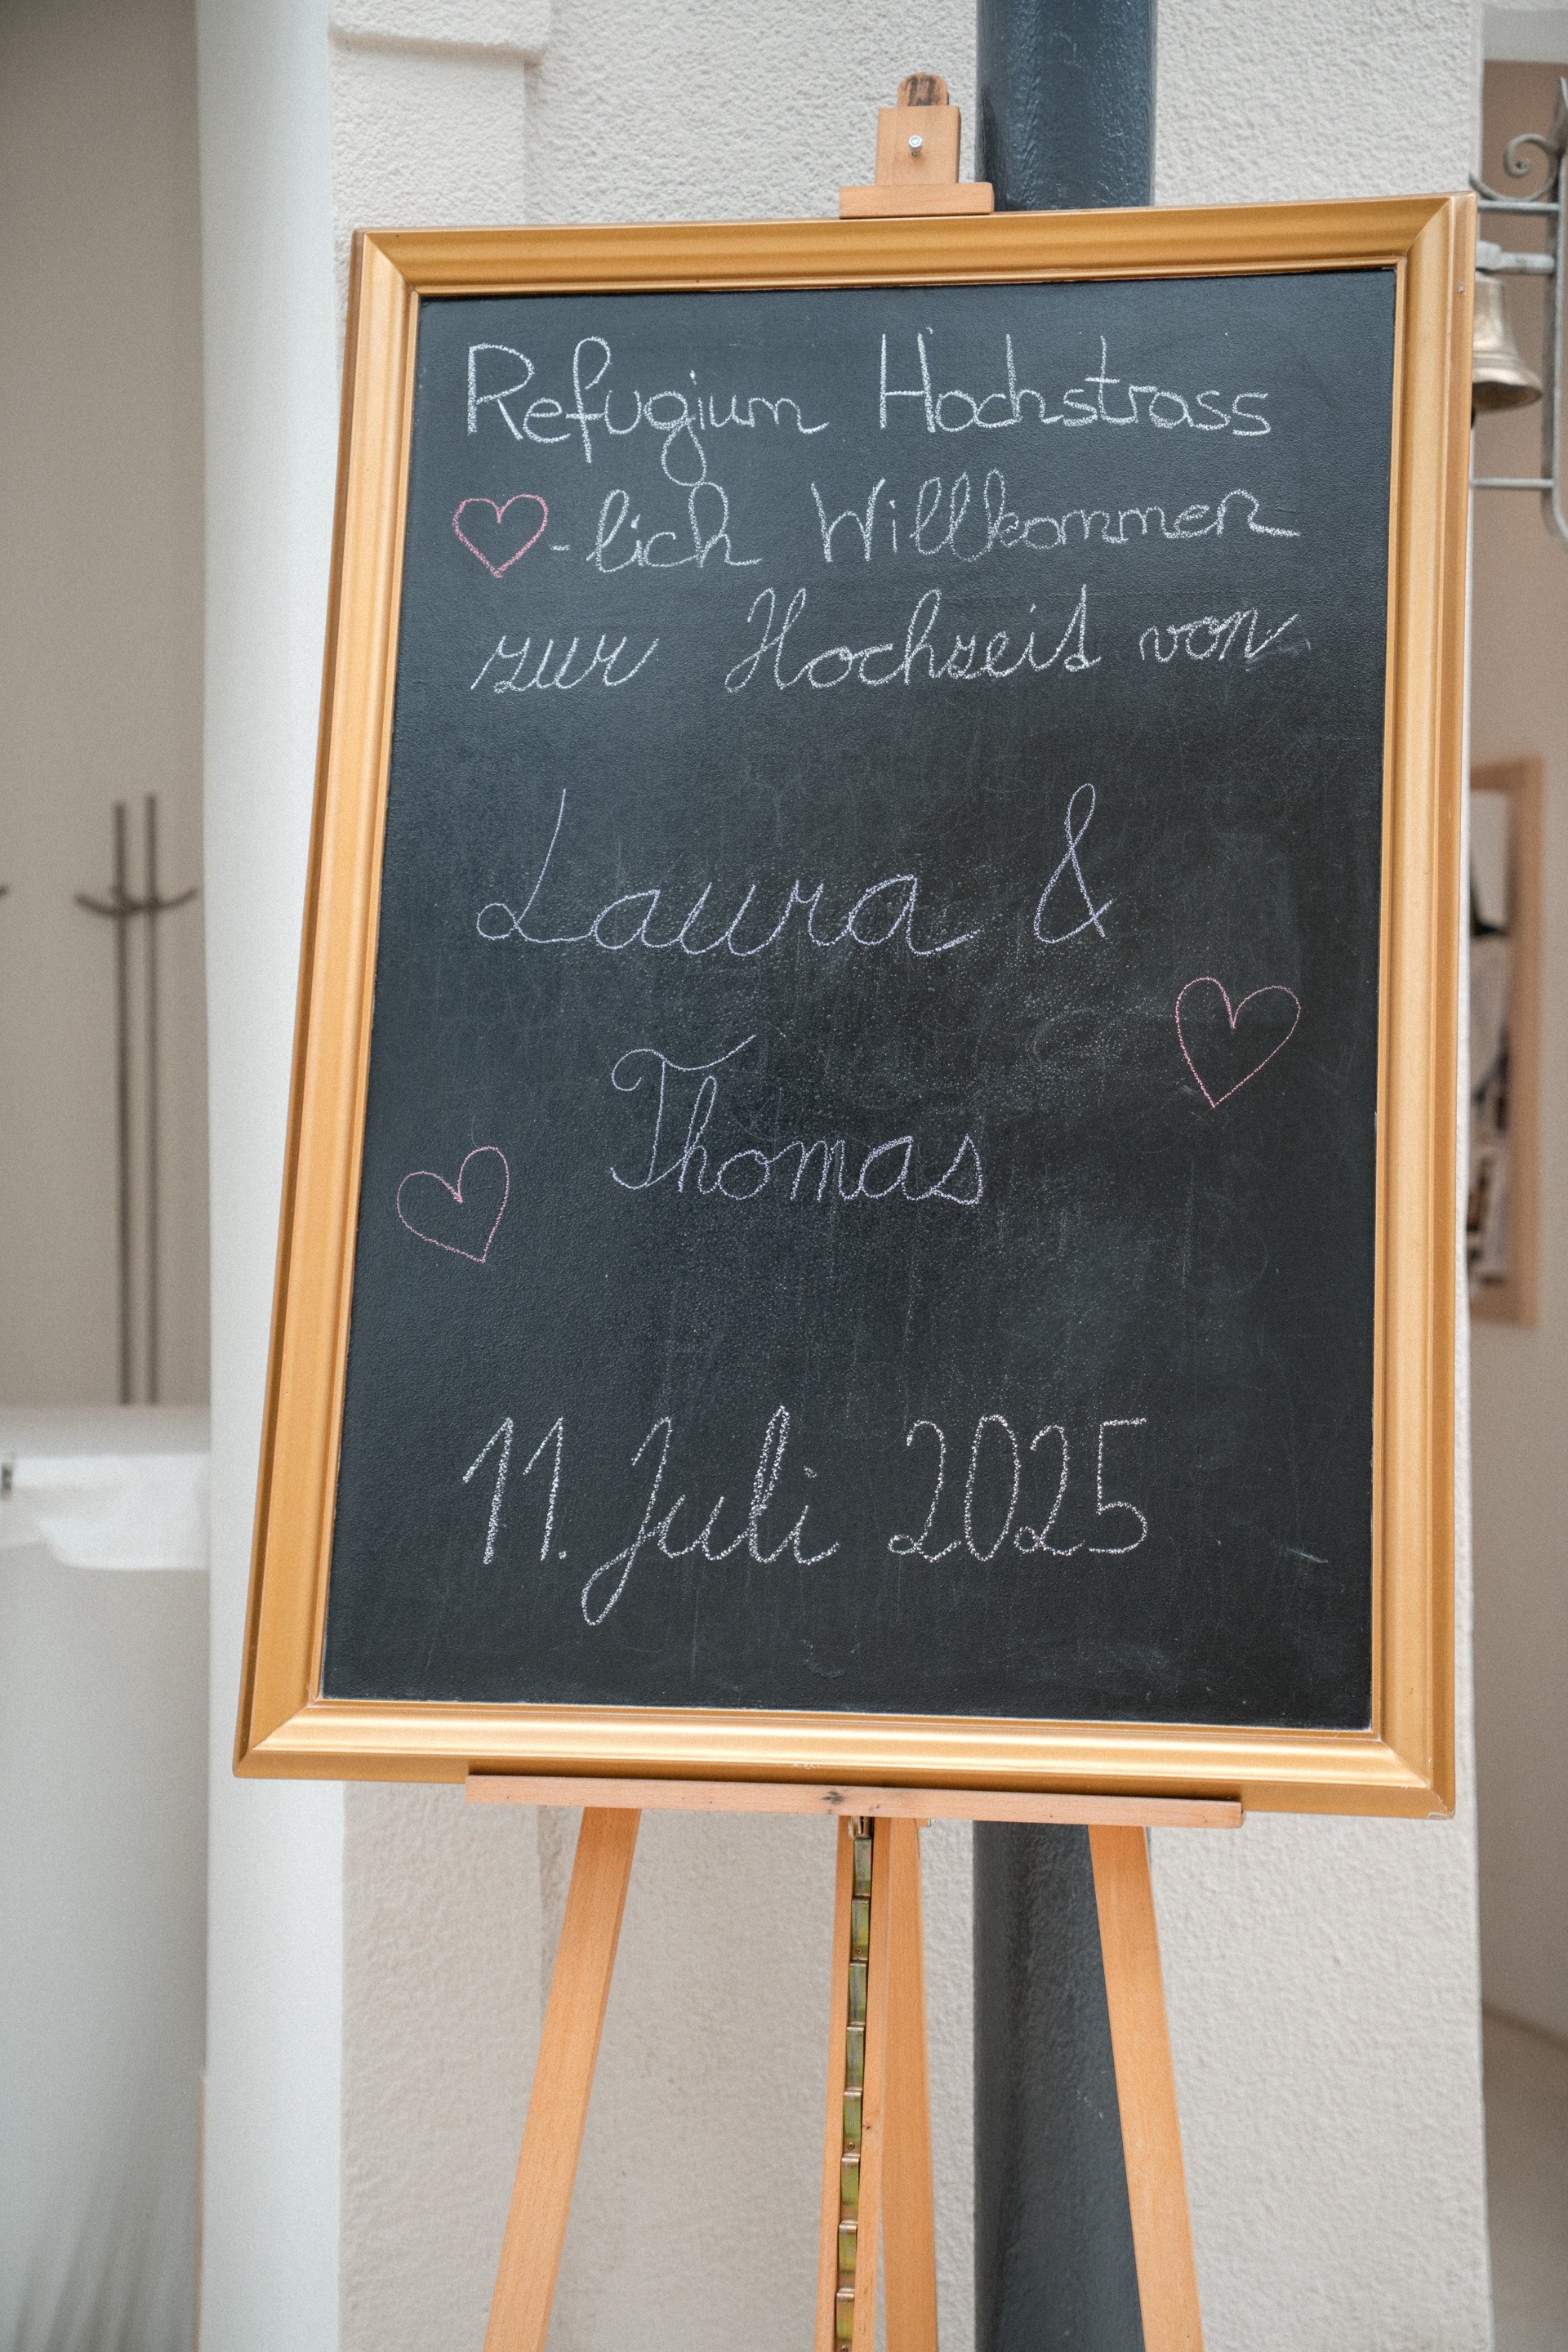 Refugium Hochstrass
♡-lich Willkommen
zur Hochzeit von
Laura &
Thomas
11. Juli 2025